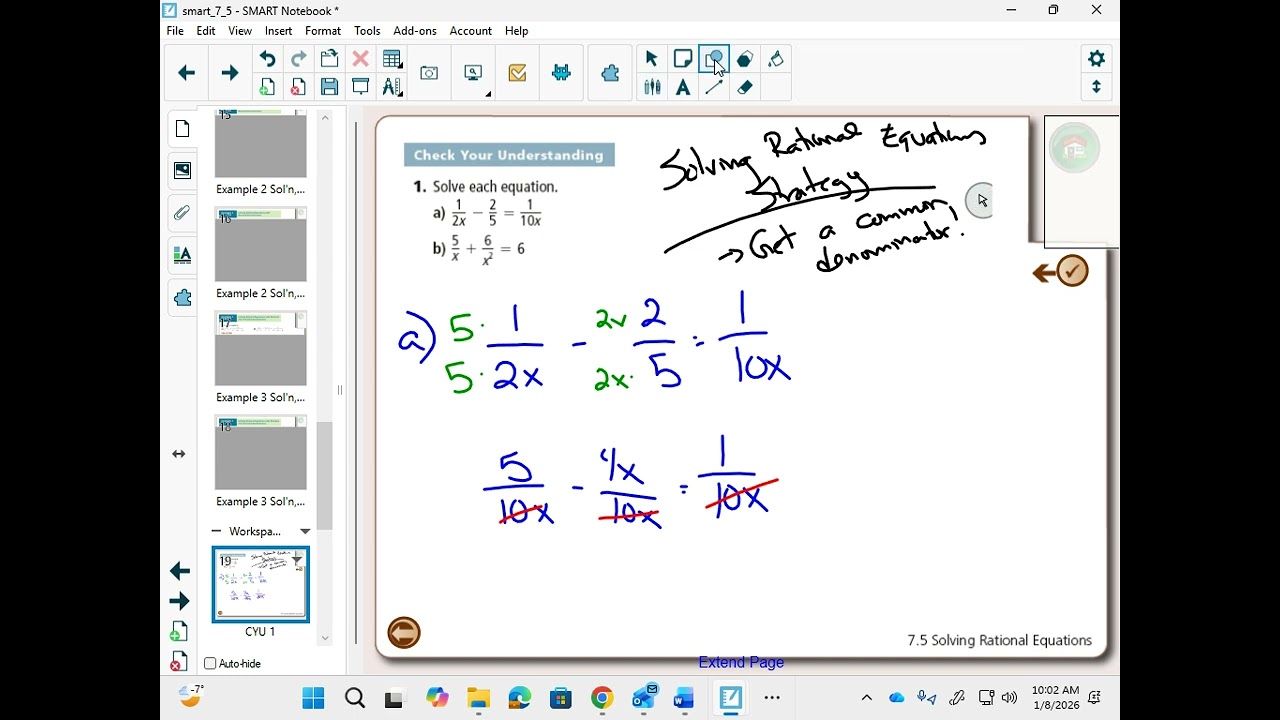 smart_7_5 - SMART Notebook *
File Edit View Insert Format Tools Add-ons Account Help
15
Example 2 Sol'n,...
16
Example 2 Sol'n,...
17
Example 3 Sol'n,...
18
Example 3 Sol'n,...
Workspa...
19
CYU 1
Auto-hide
Check Your Understanding
1. Solve each equation.
a) 1/2x − 2/5 = 1/10x
b) 5/x + 6/x² = 6
Solving Rational Equations
Strategy
→ Get a common
denominator!
a) 5· 1/5· 2x - 2x 2/2x· 5 = 1/10x
5/10x - 4x/10x = 1/10x
7.5 Solving Rational Equations
Extend Page
-7°
10:02 AM
1/8/2026